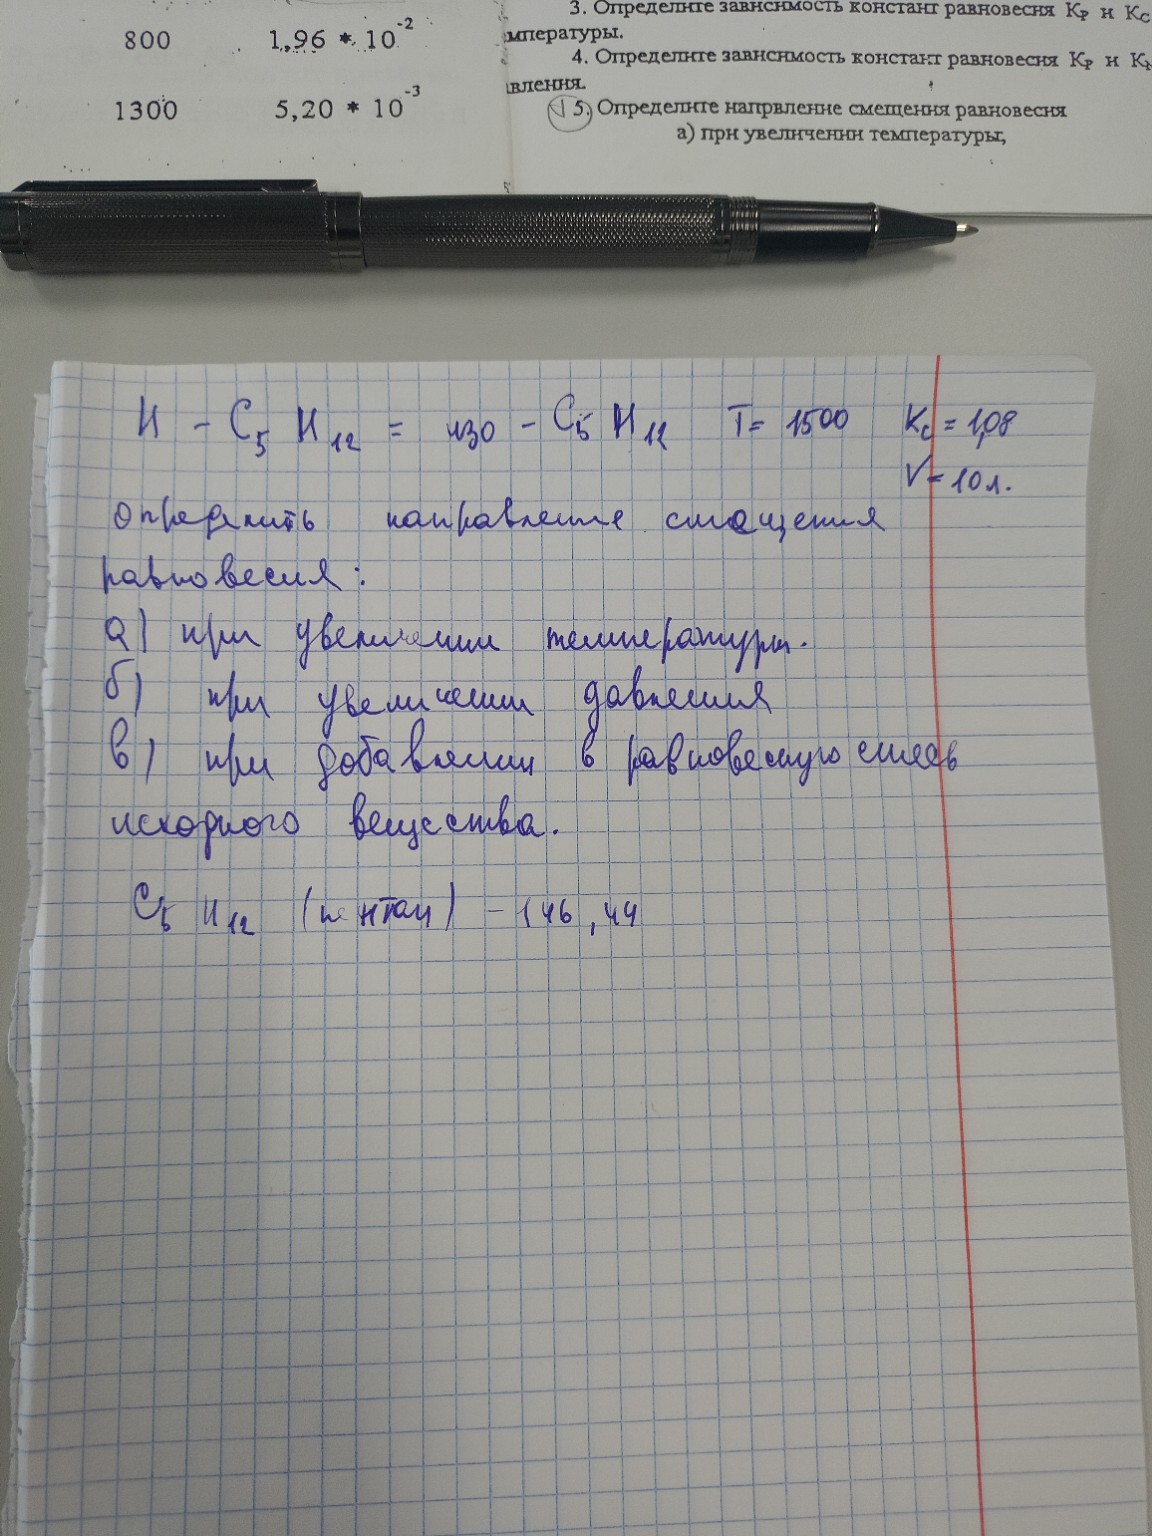 800 1,96 * 10^-2
1300 5,20 * 10^-3
3. Определите зависимость констант равновесия Kр и Kс
мпературы.
4. Определите зависимость констант равновесия Kр и
вления.
5. Определите напрвление смещения равновесия
а) при увеличении температуры;
Н - C5 H12 = изо - C5 H12 T= 1500 Kc = 1,08
V = 10 л.
Определить направление смещения
равновесия:
а) при увеличении температуры.
б) при увеличении давления
в) при добавлении в равновесную смесь
исходного вещества.
C5 H12 (пентан) - 146,44